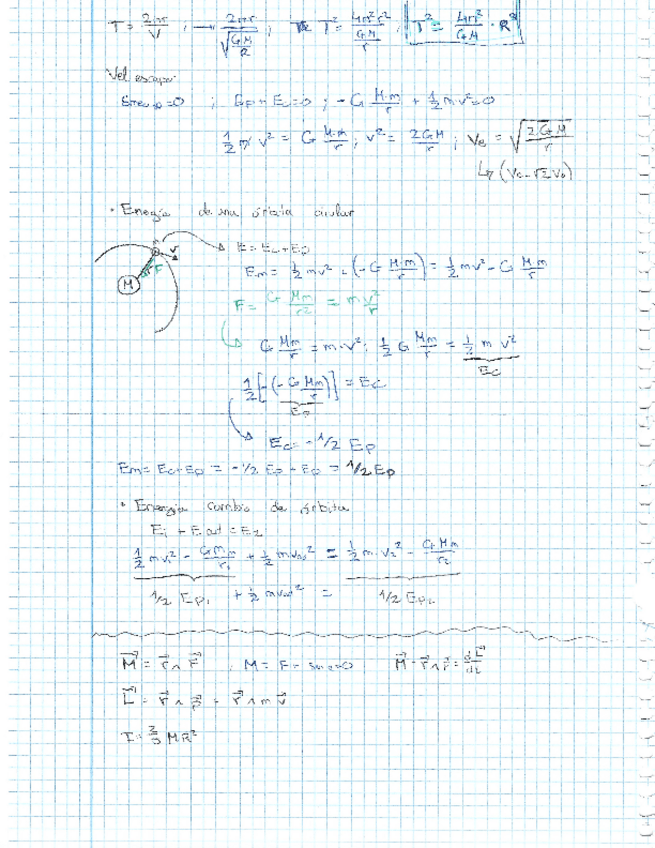 T = 2πr/V ; → 2πr/√(GM/R) ; T² = 4π²r²/(GM/r) ; T² = 4π²/GM · R³
Vel escape
Emec,p=0 ; Ep + Ec=0 ; -G M·m/r + 1/2 m v² = 0
1/2 m v² = G M·m/r ; v² = 2GM/r ; Ve = √(2GM/r)
↳ (Ve = √2 Vo)
· Energía de una órbita circular
E = Ec + Ep
Em = 1/2 mv² + (-G M·m/r) = 1/2 mv² - G M·m/r
F = G Mm/r² = m v²/r
G Mm/r = m·v² ; 1/2 G Mm/r = 1/2 m v²
Ec
1/2 [-(-G Mm/r)] = Ec
Ep
Ec = -1/2 Ep
Em = Ec+Ep = -1/2 Ep + Ep = 1/2 Ep
· Energía cambio de órbita
E1 + E = E2
1/2 mv1² - GMm/r1 + 1/2 mv² = 1/2 m·v2² - GMm/r2
1/2 Ep1 + 1/2 mv² = 1/2 Ep2
M = r ∧ F ; M = F = 0 M = r ∧ F = dL/dt
L = r ∧ p = r ∧ m v
I = 2/5 MR²
M F v